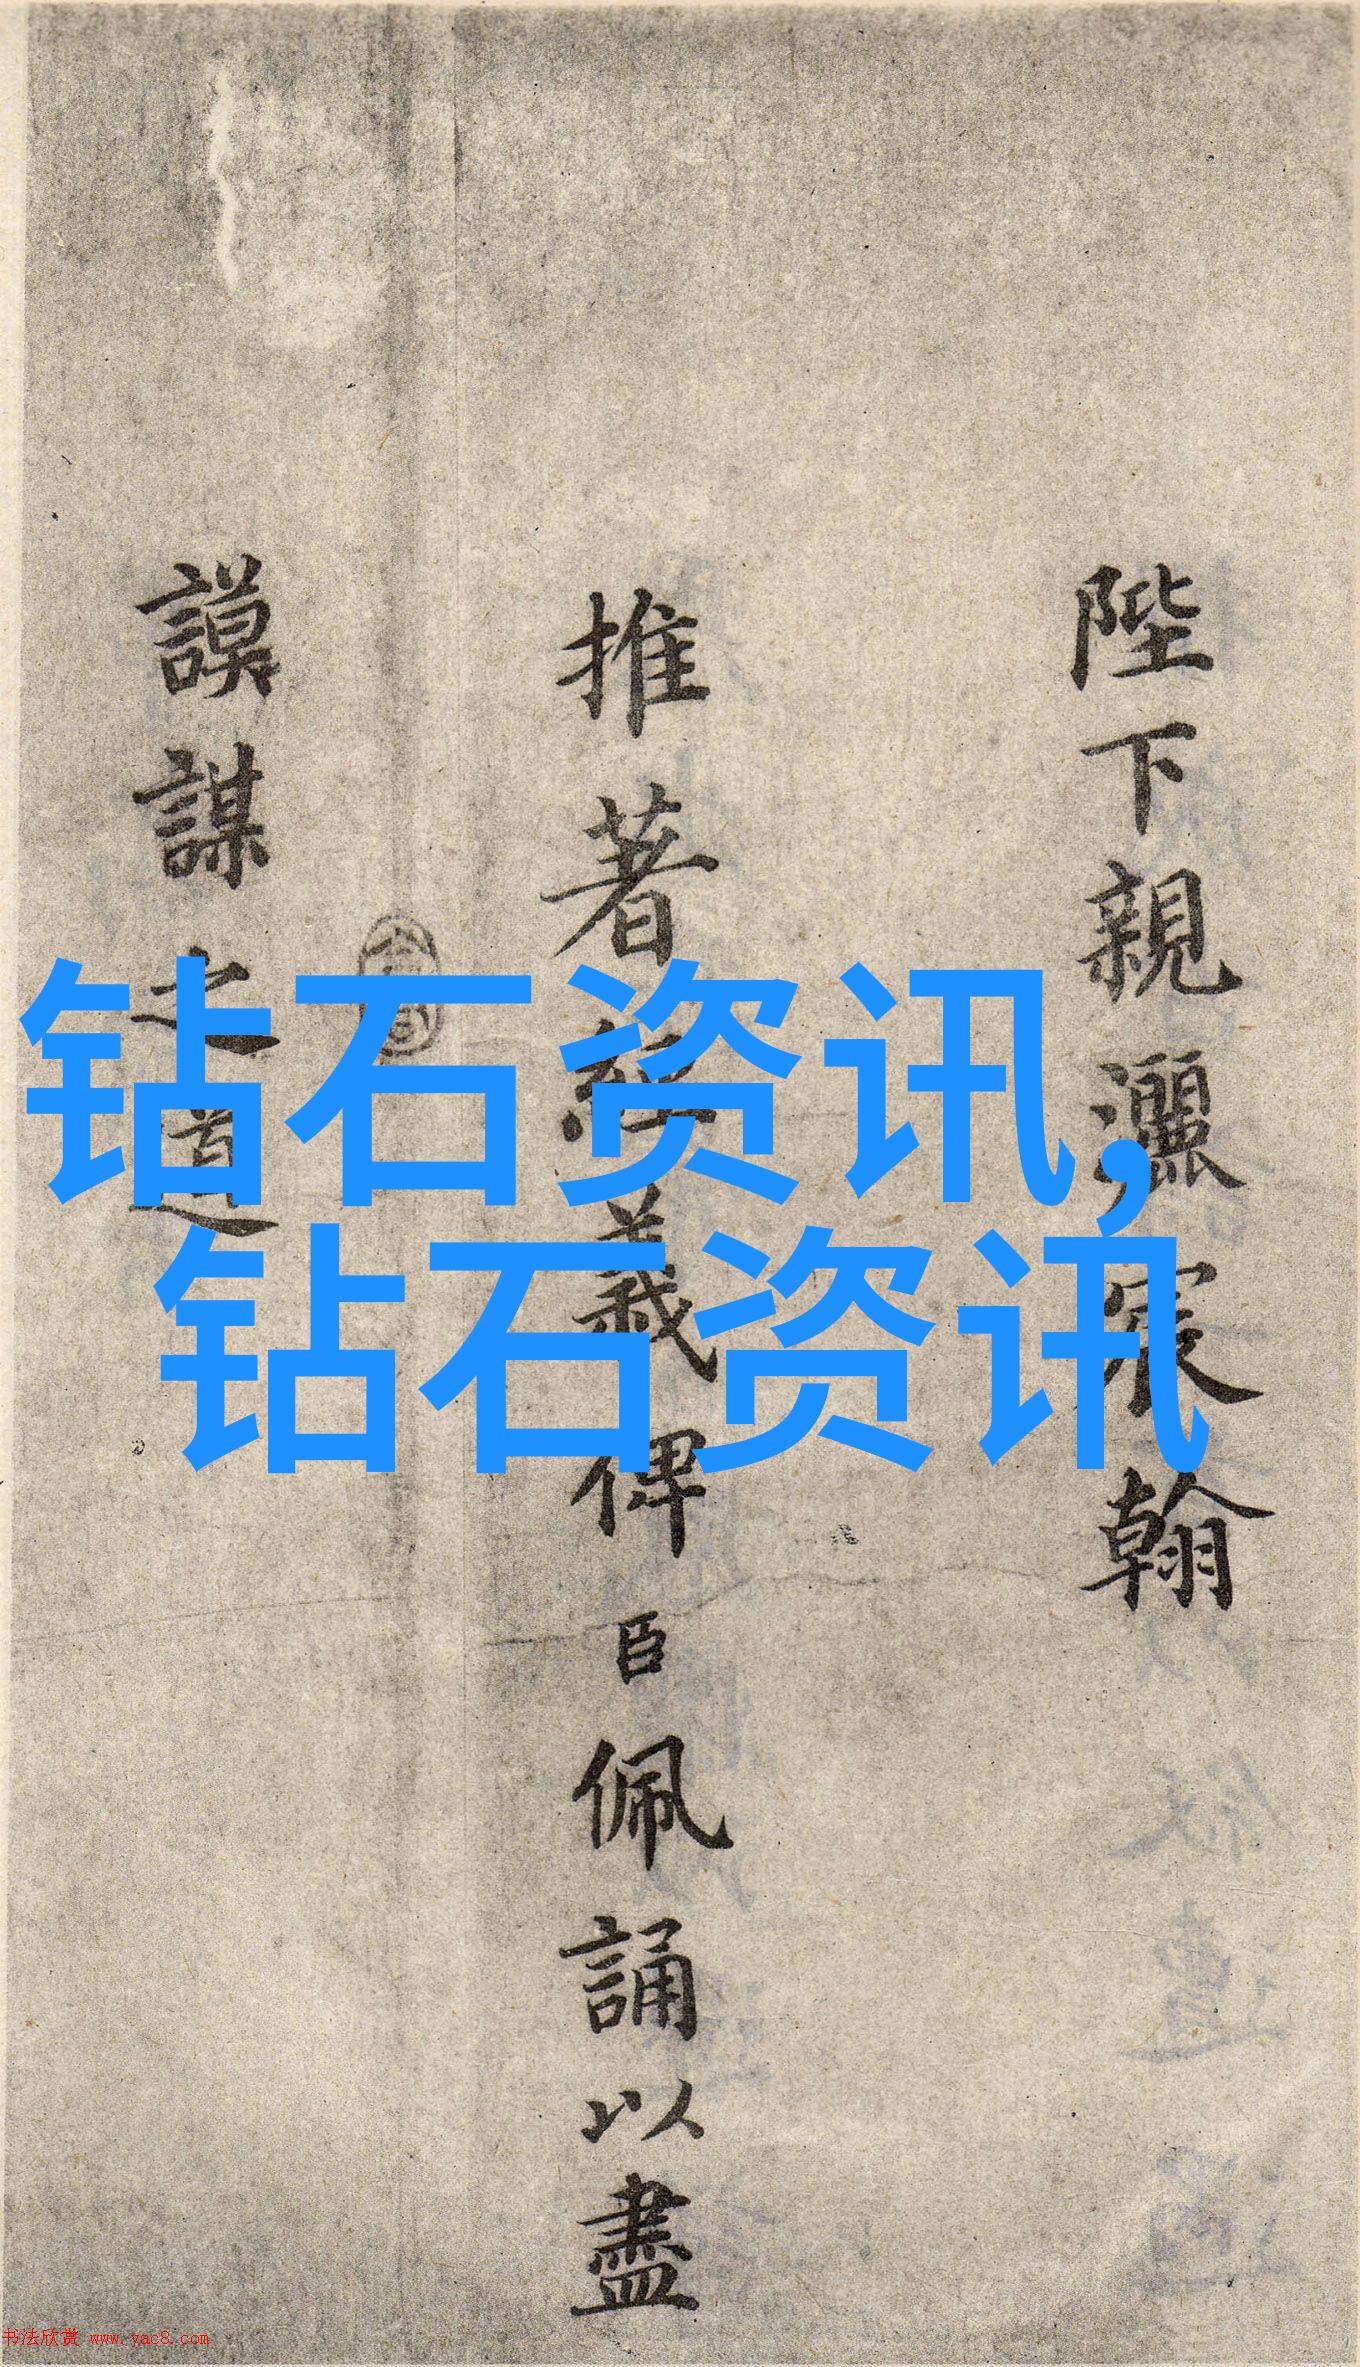 陛下親灑宸翰
推著經義俾臣佩誦以盡
謨謀之道
钻石资讯,
钻石资讯
书法欣赏 www.yac8.com